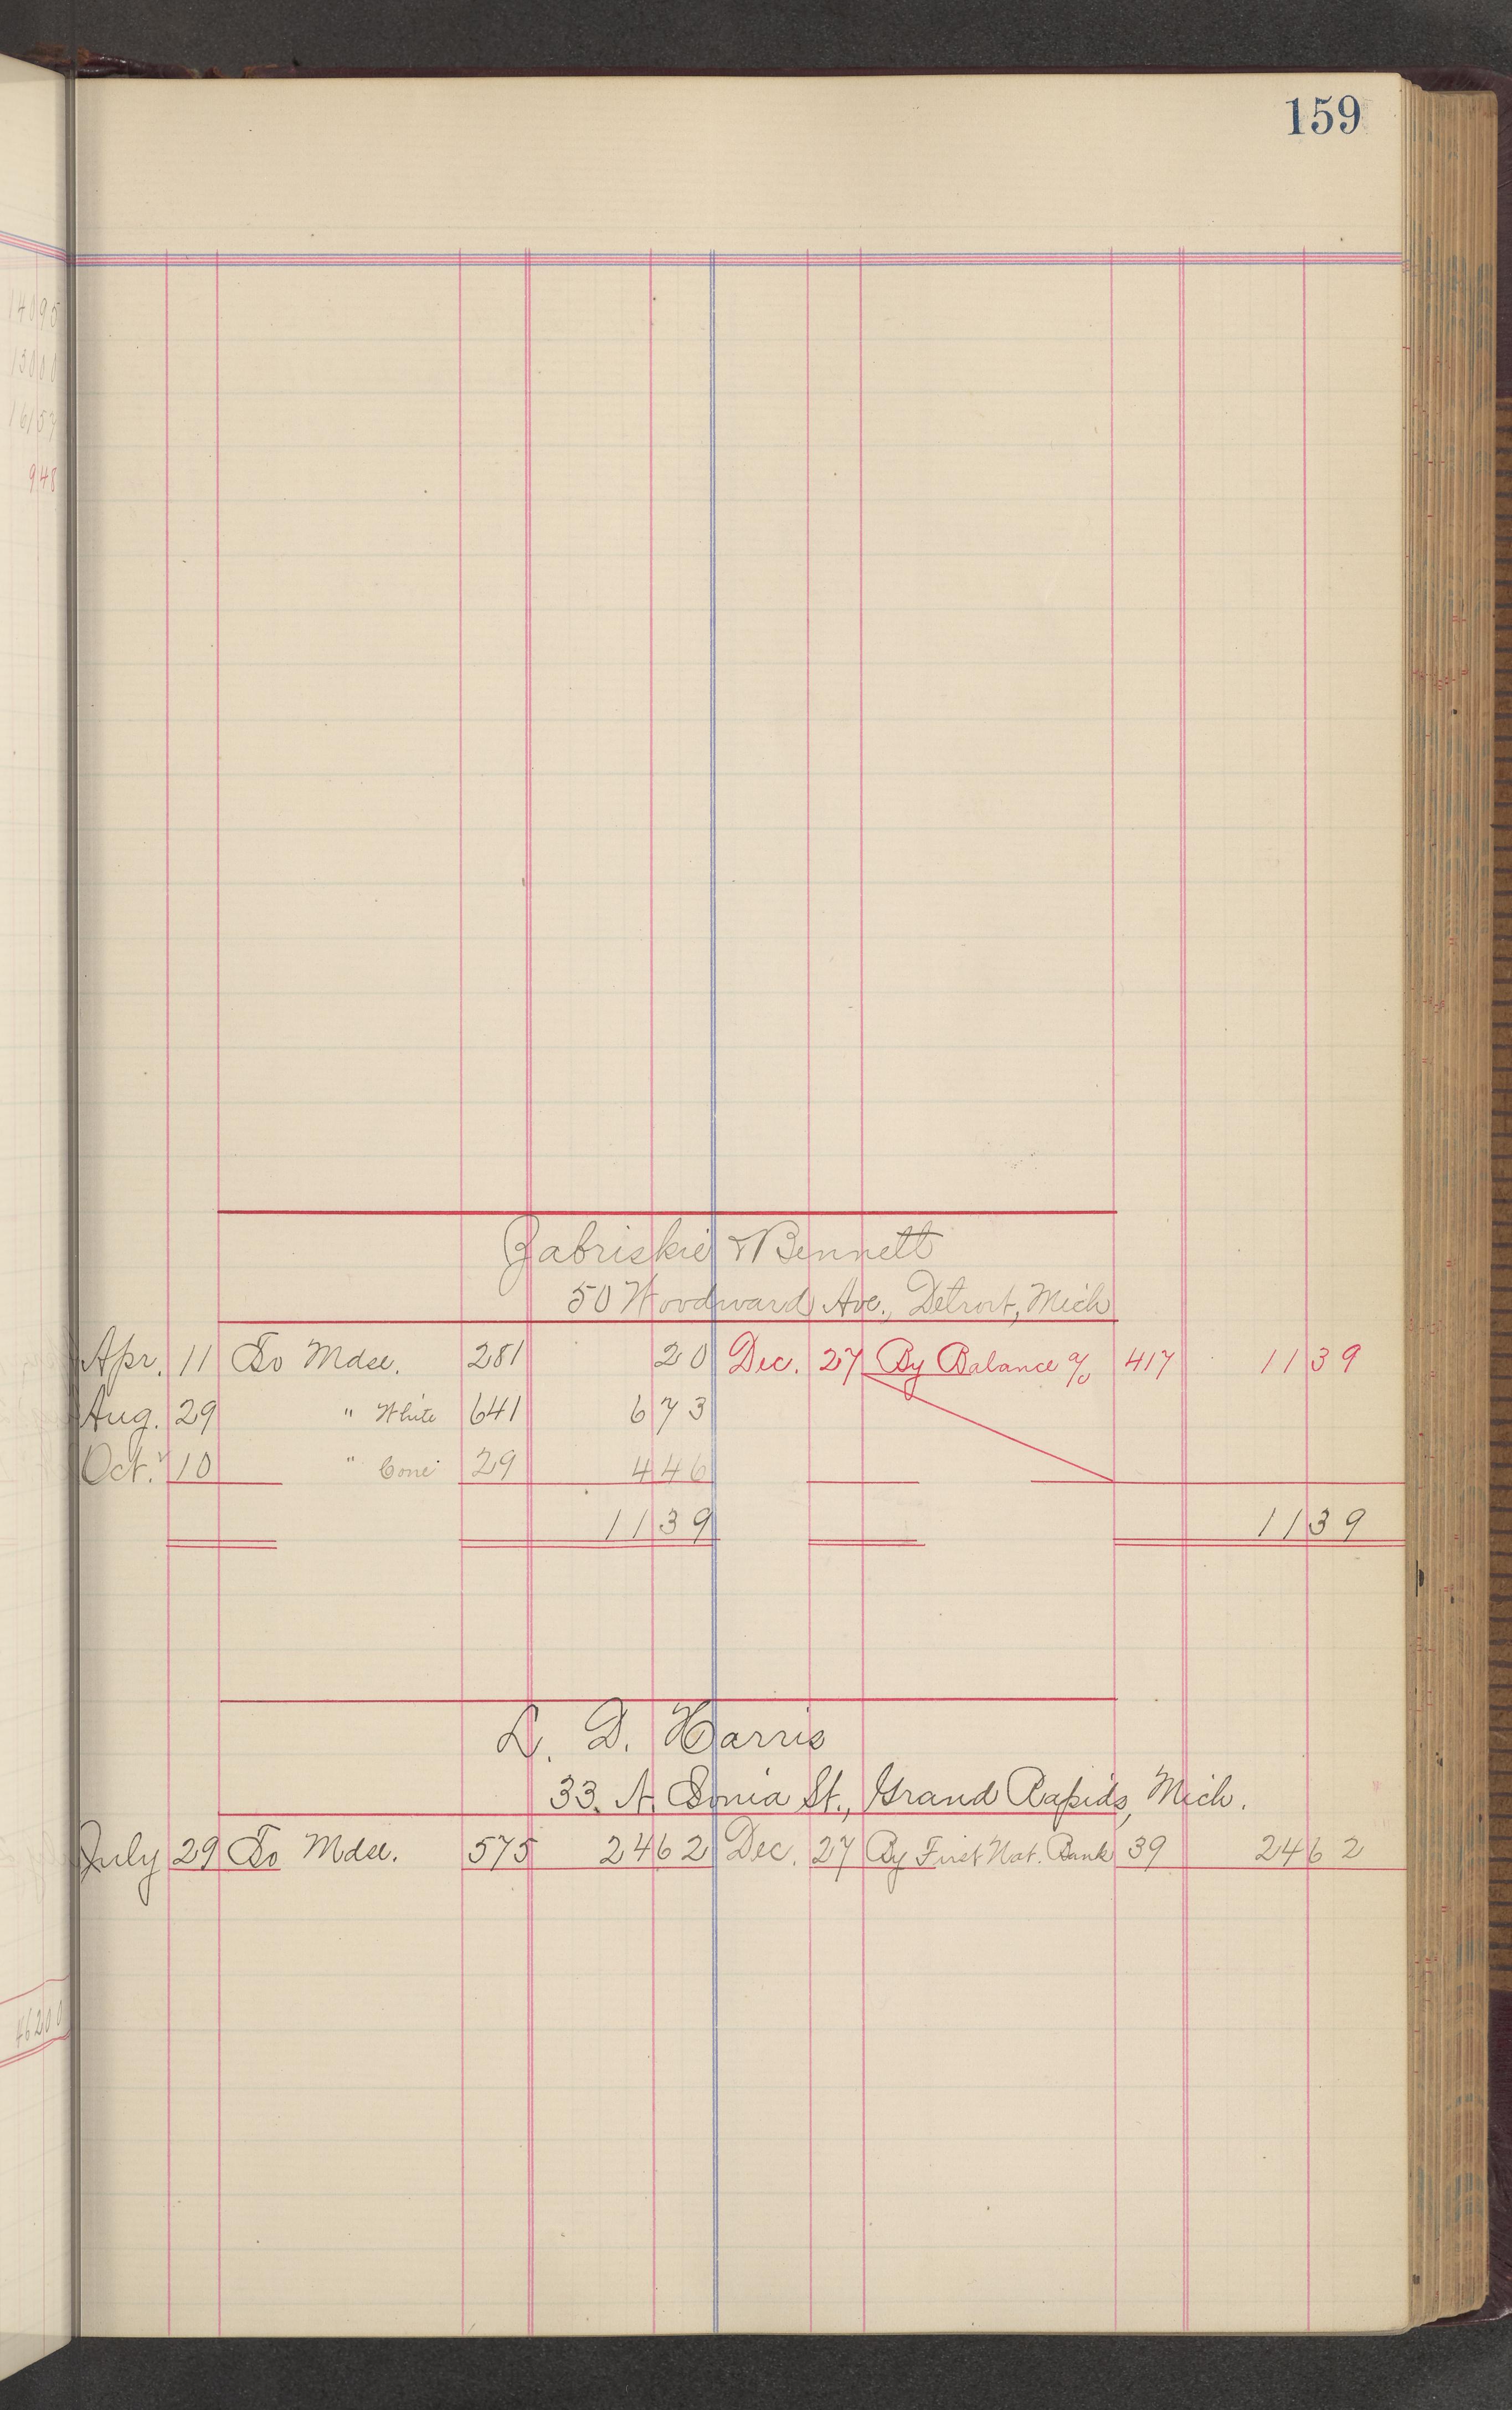 159
14095
1300
16157
948
Zabriskie & Bennett
50 Woodward Ave., Detroit, Mich
Apr. 11 To Mdse. 281 20 Dec. 27 By Balance a/c 417 1139
Aug. 29 " White 641 673
Oct. 10 " Cone 29 446
1139 1139
L. D. Harris
33. N. Sonia St., Grand Rapids, Mich.
July 29 To Mdse. 575 2462 Dec. 27 By First Nat. Bank 39 2462
46200